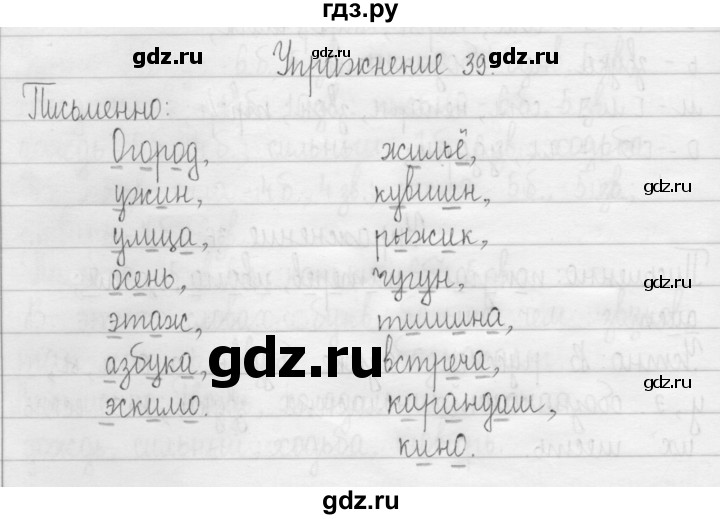 гдз.ру
Упражнение 39.
Письменно:
Огород,
ужин,
улица,
осень,
этаж,
азбука,
эскимо.
жильё,
кувшин,
рыжик,
чугун,
тишина,
встреча,
карандаш,
кино.
gdz.ru
gdz.ru
gdz.ru
gdz.ru
gdz.ru
gdz.ru
gdz.ru
gdz.ru